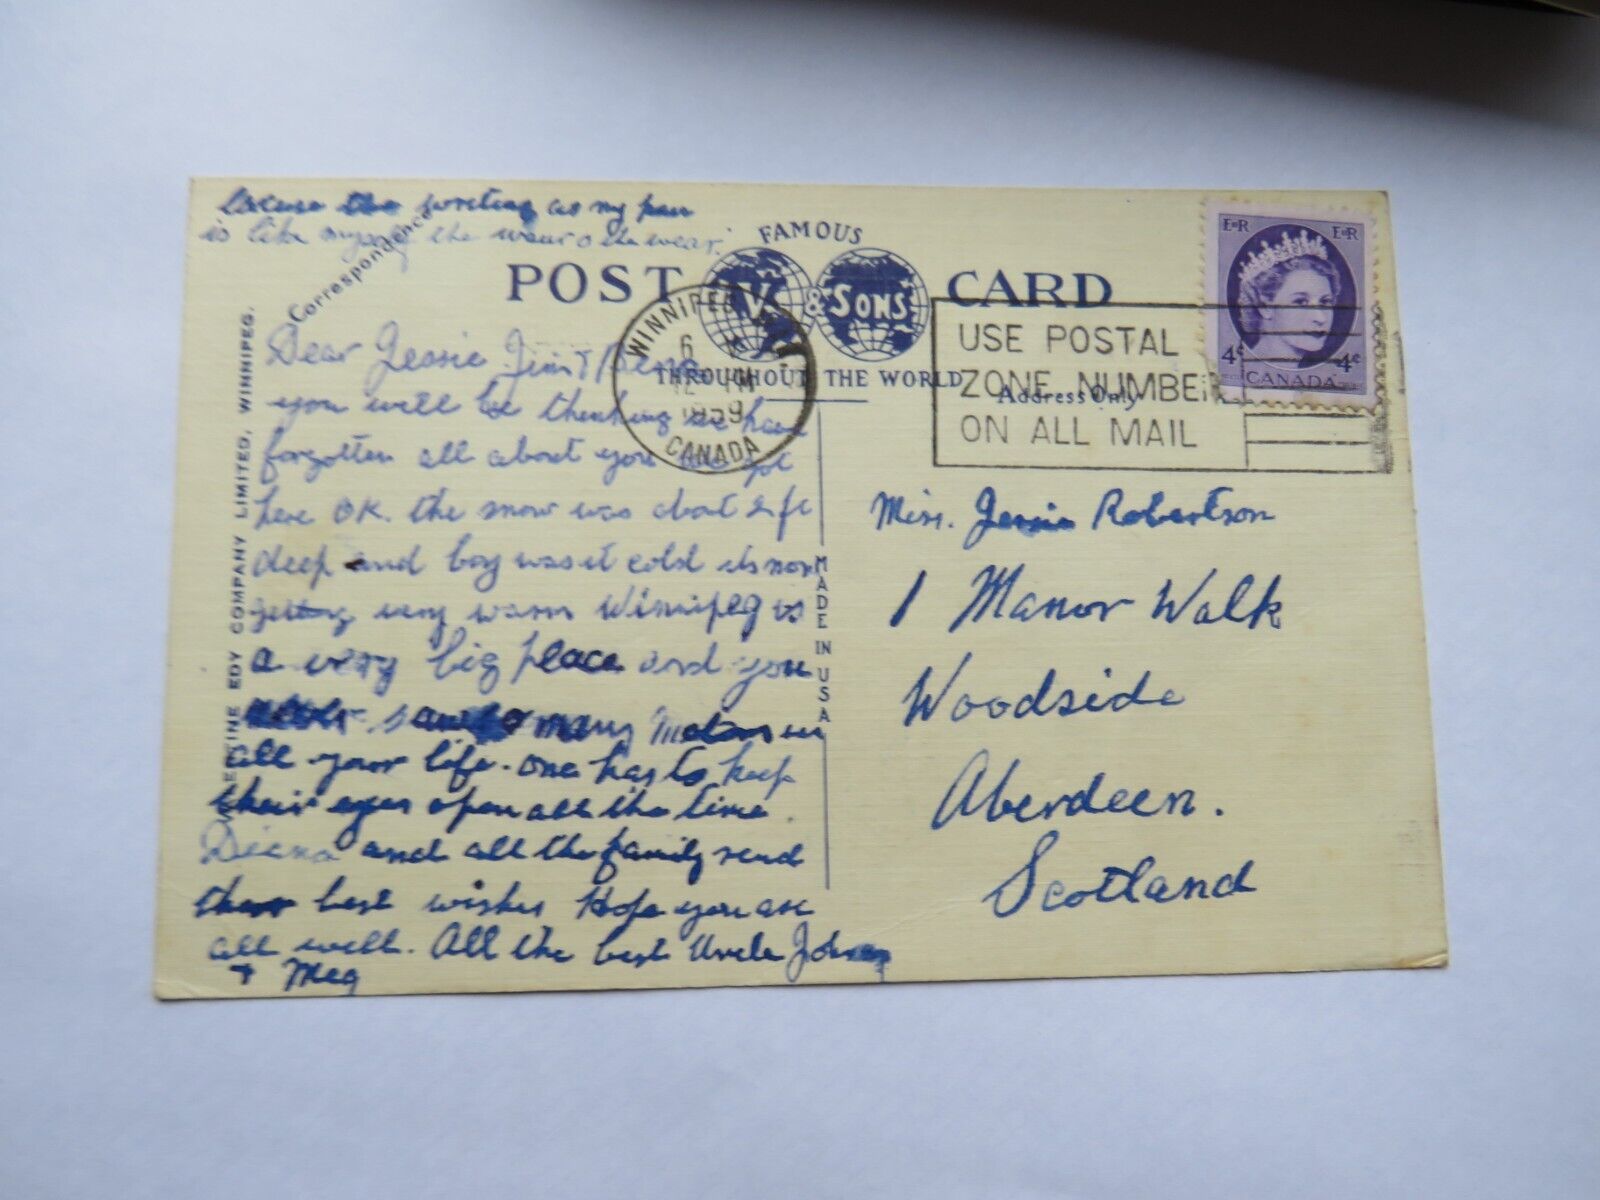 Excuse the writing as my pen
is like myself the wear o the wear.
Correspondence
FAMOUS
POST CARD
V. & SONS
THROUGHOUT THE WORLD
Address Only
WINNIPEG
6
12 PM
1959
CANADA
USE POSTAL
ZONE NUMBER
ON ALL MAIL
E R E R
4c CANADA 4c
Dear Jessie Jim &
you will be thinking we have
forgotten all about you we got
here OK. the snow was about 2 ft
deep and boy was it cold its now
getting very warm Winnipeg is
a very big place and you
never saw so many motors in
all your life. one has to keep
their eyes open all the time.
Diena and all the family send
their best wishes Hope you are
all well. All the best Uncle
& Meg
Miss. Jessie Robertson
1 Manor Walk
Woodside
Aberdeen.
Scotland
MADE IN USA
EDY COMPANY LIMITED, WINNIPEG.